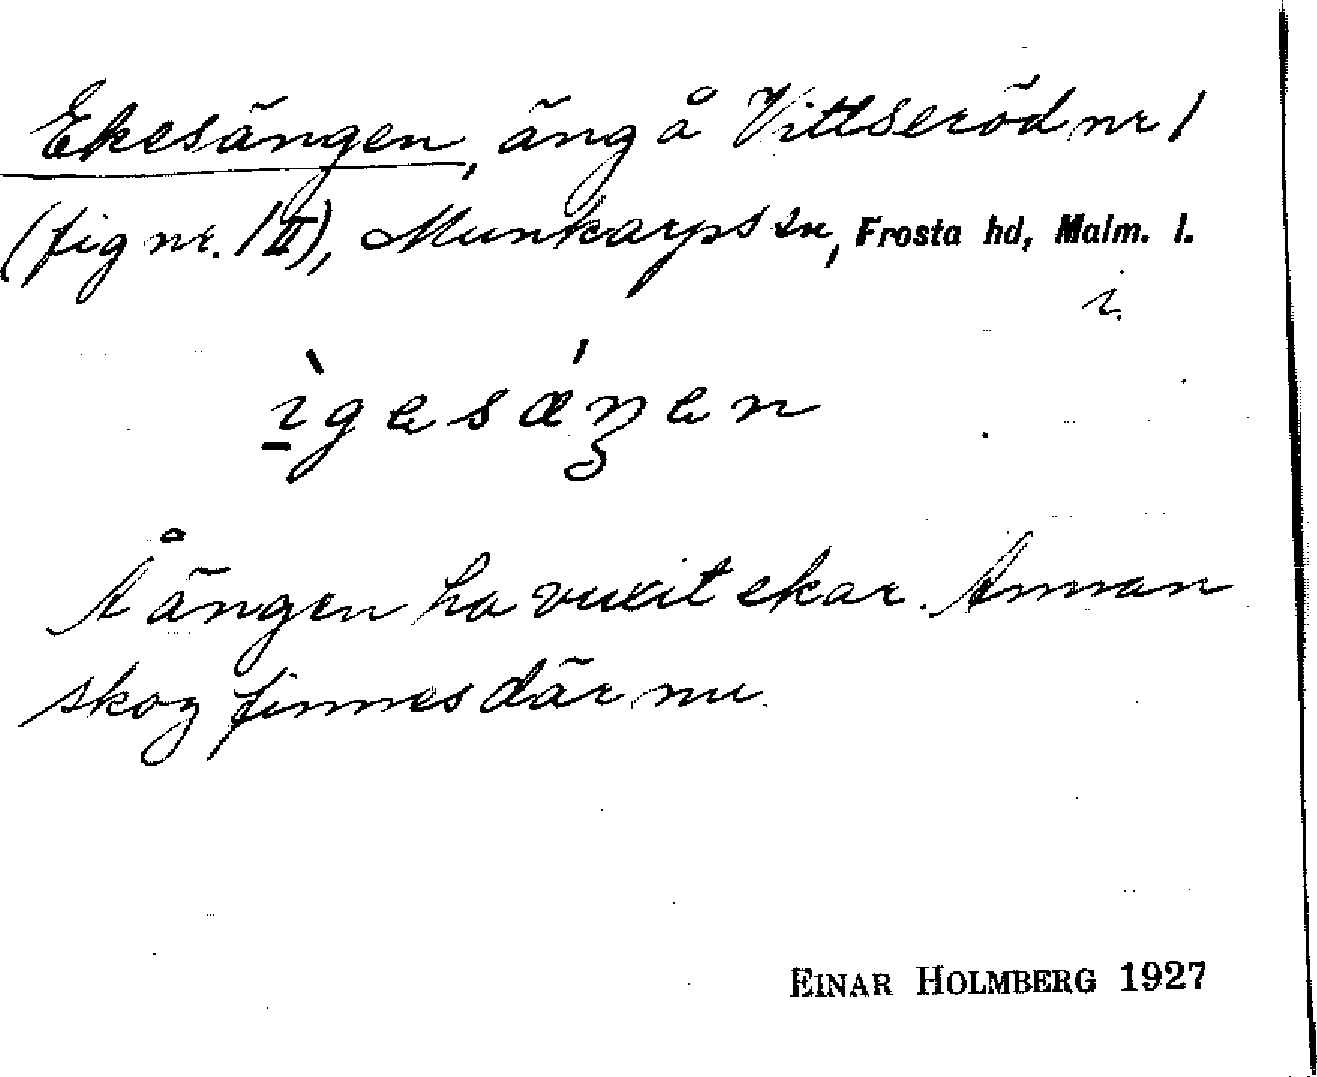 Ekesängen, äng å Vittseröd nr 1
(fig nr. 1 II), Munkarps sn, Frosta hd, Malm. l.
i.
ı̱̀gesǽŋen
Å ängen ha vuxit ekar. Annan
skog finnes där nu.
EINAR HOLMBERG 1927